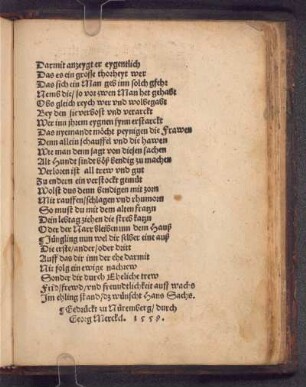 Darmit anzeygt er eygentlich
Das es ein grosse thorheyt wer
Das sich ein Man geb inn solch gfehr
Nemb die / so vor zwen Man het gehabt
Obs gleich reych wer vnd wolbegabt
Bey den sie verbost vnd verarckt
Wer inn jhrem eygnen synn erstarckt
Das nyemandt möcht peynigen die Frawen
Denn allein schauffel vnd die hawen
Wie man denn sagt von diesen sachen
Alt Hunde sind böß bendig zu machen
Verloren ist all trew vnd gut
Zu endern ein verstockt gemüt
Wolst dus denn bendigen mit zorn
Mit rauffen / schlagen vnd rhumorn
So must du mit dem alten fratzn
Dein lebtag ziehen die strebkatzn
Oder der Narr bleiben inn dem Hauß
¶ Jüngling nun wel die selber eine auß
Die erste / ander / oder dritt
Auff das dir inn der ehe darmit
Nit folg ein ewige nachrew
Sonder dir durch Eheliche trew
Frid / frewd / vnd freundtlichkeit auff wachs
Im ehling stand / dz wünscht Hans Sachs.
¶ Gedruckt zu Nürmberg / durch
Georg Merckel. 1559.